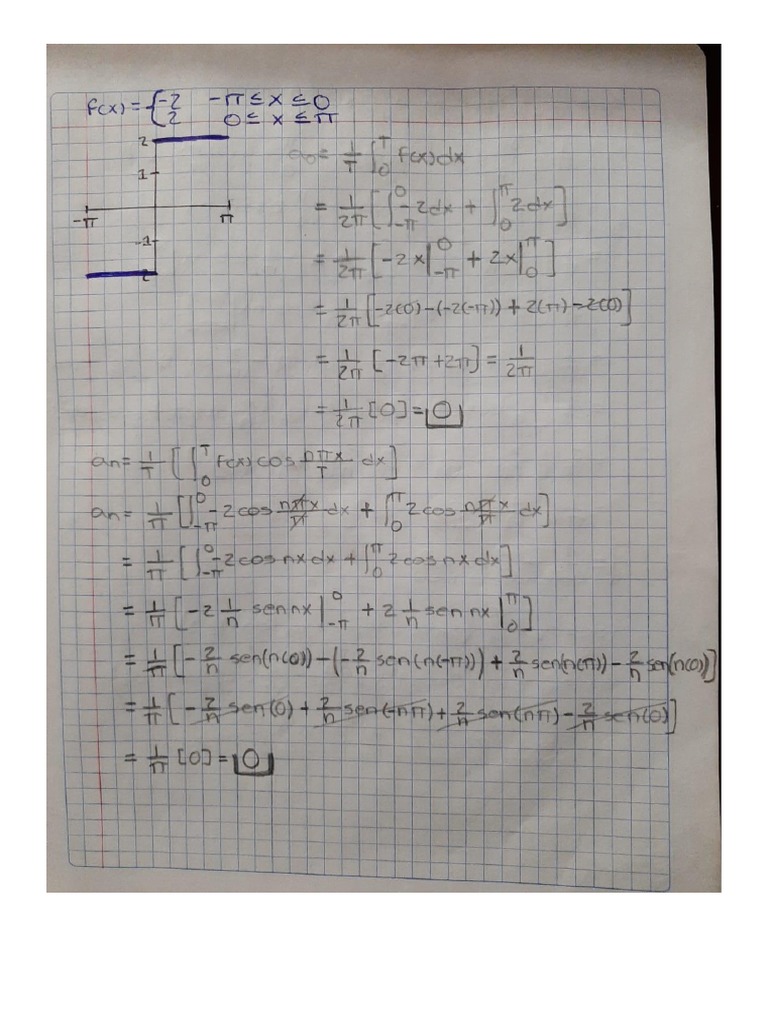 f(x) = { -2   -π ≤ x ≤ 0
2   0 ≤ x ≤ π
2
1
-π   π
-1
2
a0 = 1/T ∫_0^T f(x)dx
= 1/2π [∫_{-π}^0 -2dx + ∫_0^π 2dx]
= 1/2π [-2x|_{-π}^0 + 2x|_0^π]
= 1/2π [-2(0)-(-2(-π)) + 2(π) -2(0)]
= 1/2π [-2π+2π] = 1/2π
= 1/2π [0] = 0
an = 1/T [∫_0^T f(x) cos nπx/T dx]
an = 1/π [∫_{-π}^0 -2cos nπx/π dx + ∫_0^π 2cos nπx/π dx]
= 1/π [∫_{-π}^0 -2cos nx dx + ∫_0^π 2cos nx dx]
= 1/π [-2 1/n sen nx |_{-π}^0 + 2 1/n sen nx |_0^π]
= 1/π [-2/n sen(n(0)) - (-2/n sen(n(-π))) + 2/n sen(n(π)) - 2/n sen(n(0))]
= 1/π [-2/n sen(0) + 2/n sen(-nπ) + 2/n sen(nπ) - 2/n sen(0)]
= 1/π [0] = 0